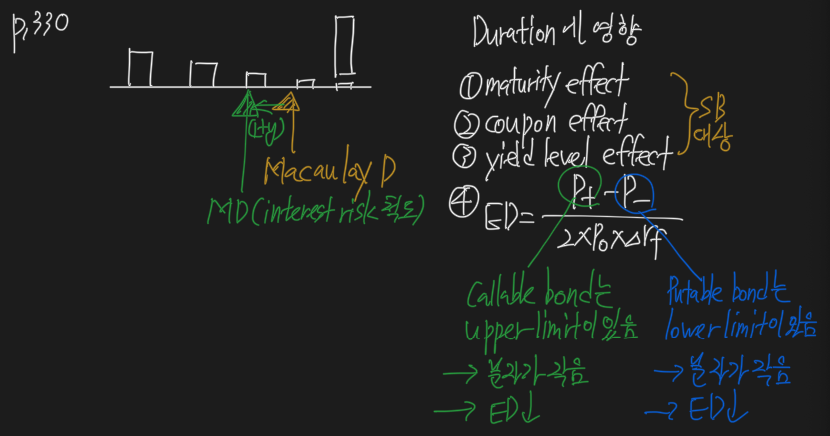 p.330
(1+y)
Macaulay D
MD(interest risk 척도)
Duration에 영향
① maturity effect
② coupon effect
③ yield level effect
SB
대상
④ ED = P+ - P- / 2×P0×Δrf
Callable bond는
upper limit이 있음
→ 분자가 작음
→ ED↓
Putable bond는
lower limit이 있음
→ 분자가 작음
→ ED↓